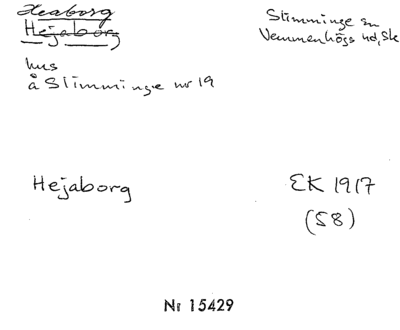 Heaborg
Hejaborg
Slimminge sn
Vemmenhögs hd, Sk
hus
å Slimminge nr 19
Hejaborg
EK 1917
(58)
Nr 15429